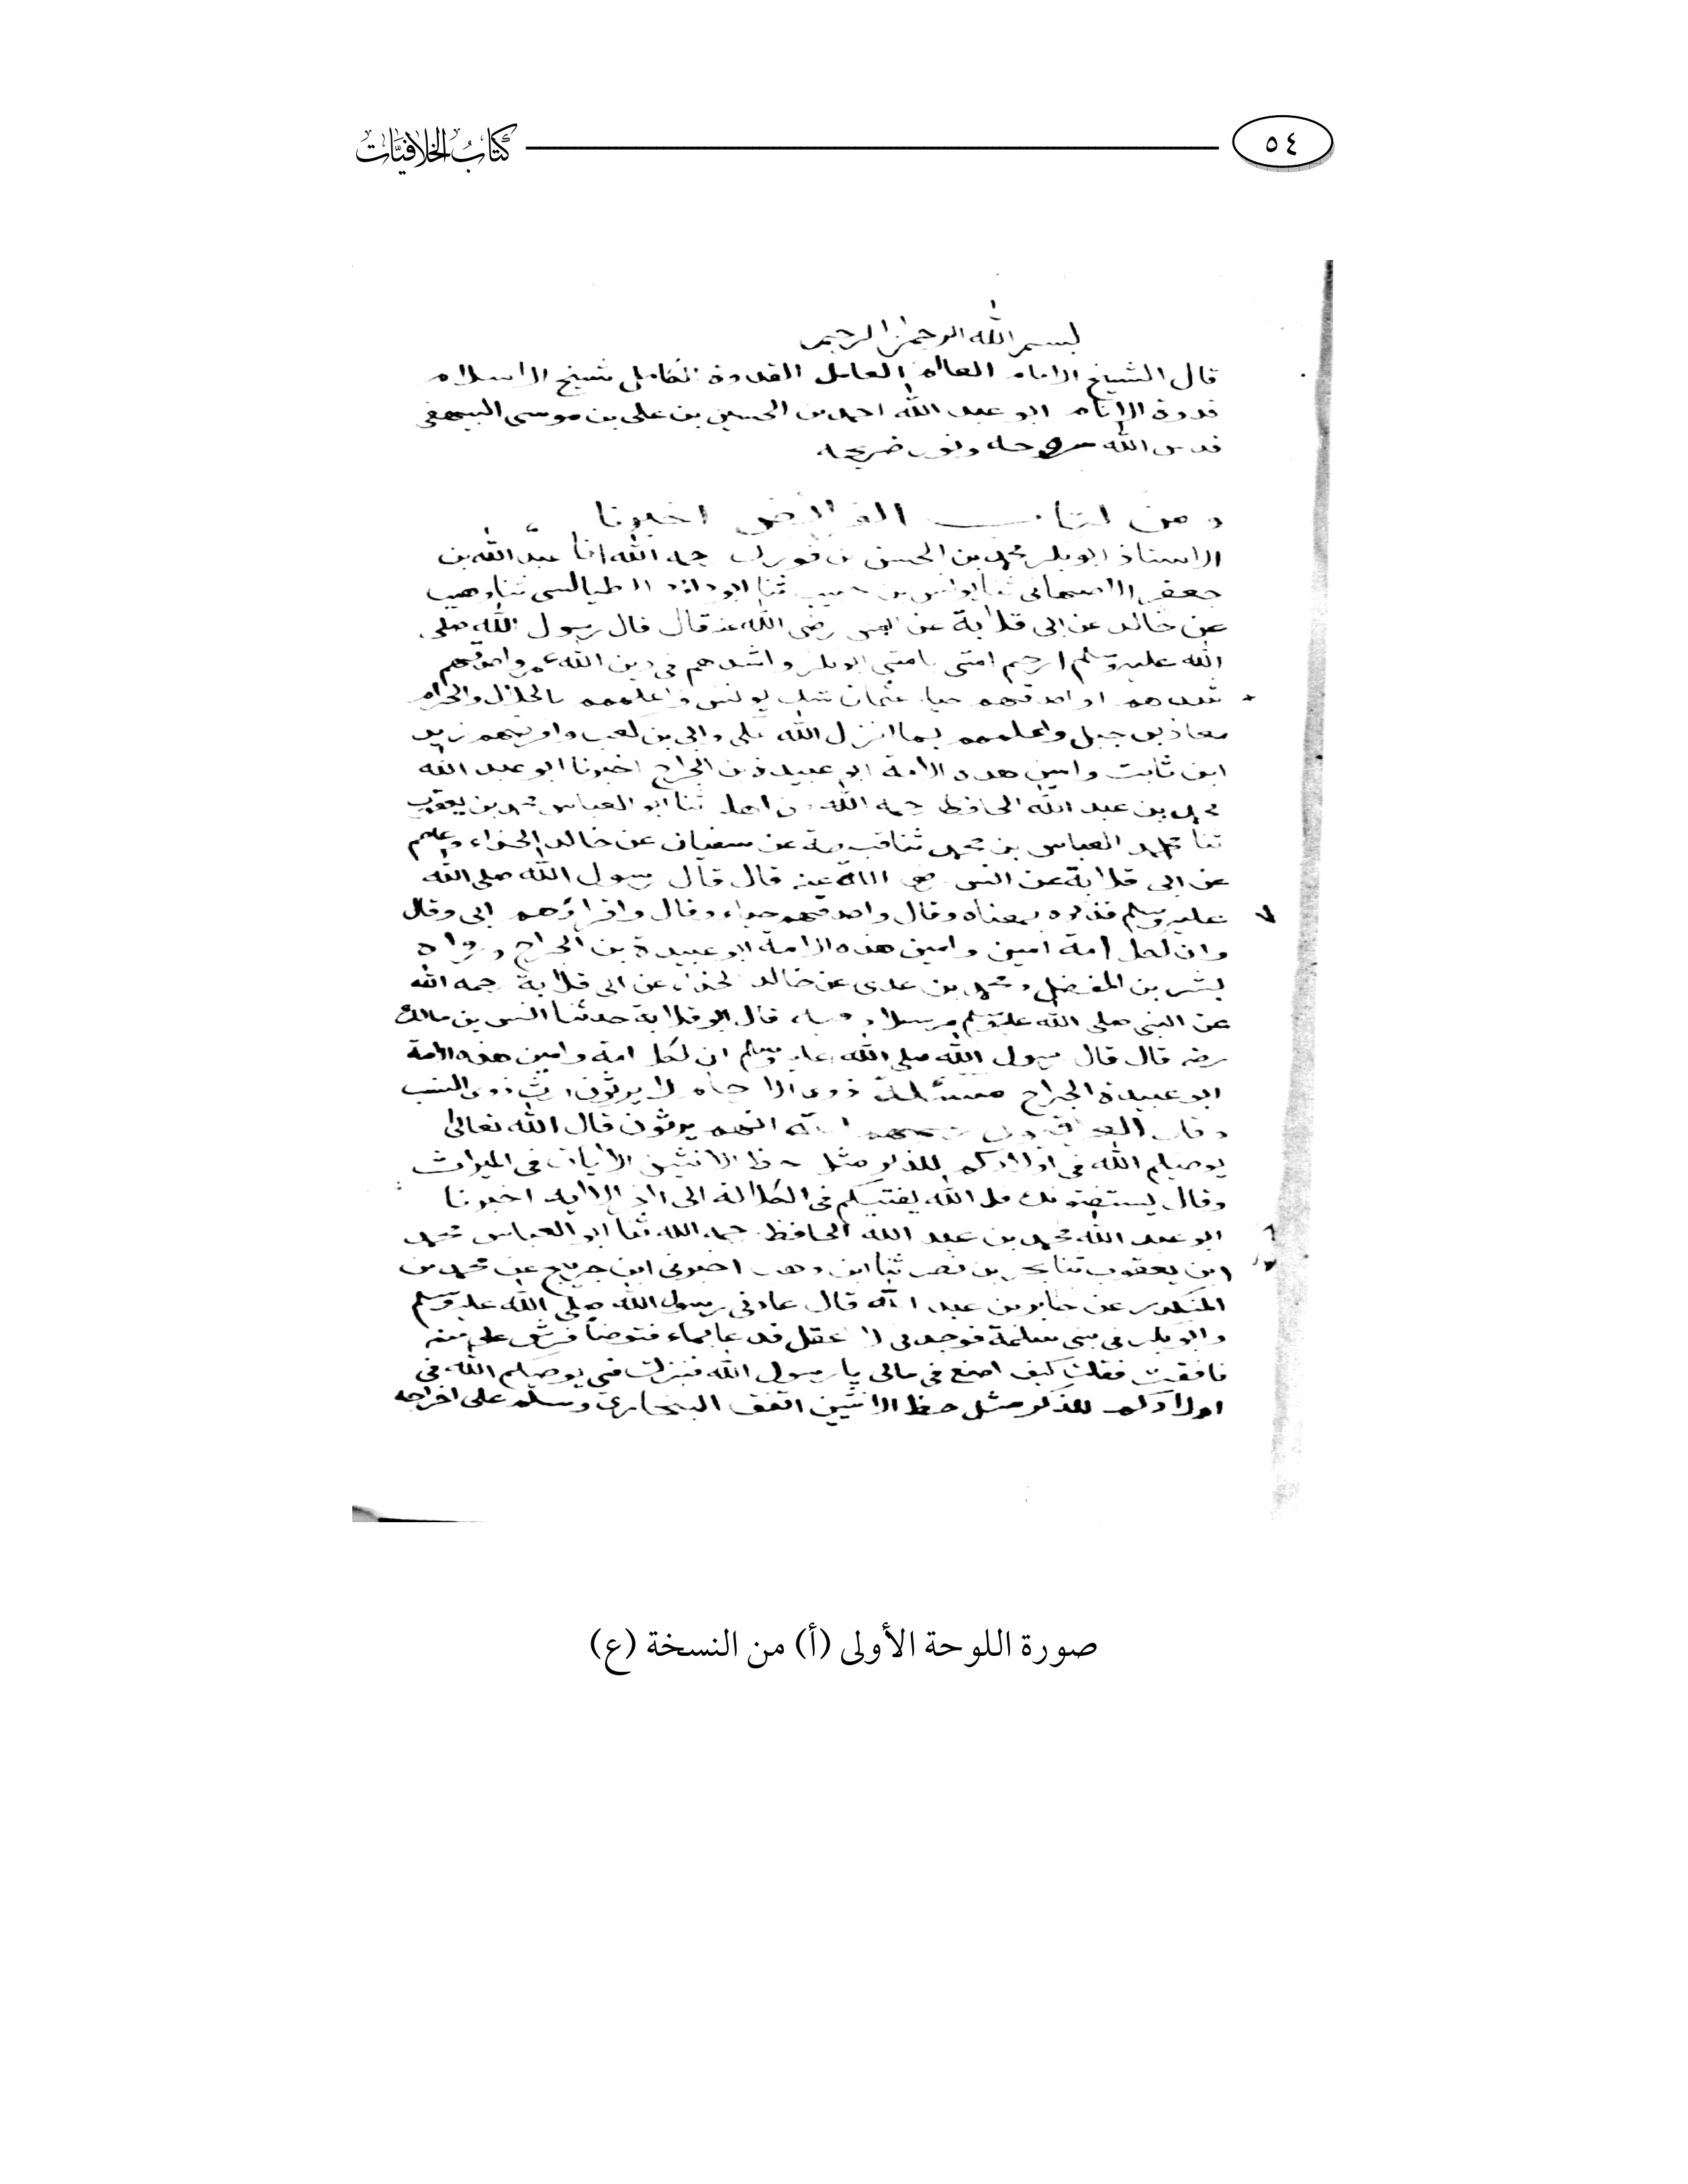 ٥٤
كتاب الخلافيات
بسم الله الرحمن الرحيم
قال الشيخ الامام العالم العامل القدوة الكامل شيخ الاسلام
قدوة الانام ابو عبد الله احمد بن الحسين بن علي بن موسى البيهقي
قدس الله روحه ونور ضريحه
ومن كتاب الفرائض اخبرنا
الاستاذ ابو بكر محمد بن الحسن بن فورك رحمه الله انا عبد الله بن
جعفر الاصبهاني ثنا يونس بن حبيب ثنا ابو داود الطيالسي ثنا وهيب
عن خالد عن ابي قلابة عن انس رضي الله عنه قال قال رسول الله صلى
الله عليه وسلم ارحم امتي بامتي ابو بكر واشدهم في دين الله عمر واصدقهم
او اصدقهم حياء عثمان شك يونس واعلمهم بالحلال والحرام
معاذ بن جبل واعلمهم بما انزل الله علي وابي بن كعب وافرضهم زيد
ابن ثابت وامين هذه الامة ابو عبيدة بن الجراح اخبرنا ابو عبد الله
محمد بن عبد الله الحافظ رحمه الله ثنا ابو العباس محمد بن يعقوب
ثنا العباس بن محمد ثنا قبيصة عن سفيان عن خالد الحذاء وعاصم
عن ابي قلابة عن انس رضي الله عنه قال قال رسول الله صلى الله
عليه وسلم فذكره بمعناه وقال واصدقهم حياء وقال واقراؤهم ابي وقال
وان لكل امة امين وامين هذه الامة ابو عبيدة بن الجراح ورواه
بشر بن المفضل ومحمد بن عدى عن خالد الحذاء عن ابي قلابة رحمه الله
عن النبي صلى الله عليه وسلم مرسلا قال ابو قلابة حدثنا انس بن مالك
رضه قال قال رسول الله صلى الله عليه وسلم ان لكل امة وامين هذه الامة
ابو عبيدة الجراح مسئلة ذوى الارحام لا يورثون
وقال العراقيون رحمهم الله انهم يرثون قال الله تعالى
يوصيكم الله في اولادكم للذكر مثل حظ الانثيين الايات في الميراث
وقال يستفتونك قل الله يفتيكم في الكلالة الى اخر الاية اخبرنا
ابو عبد الله محمد بن عبد الله الحافظ رحمه الله ثنا ابو العباس محمد
ابن يعقوب ثنا بحر بن نصر ثنا ابن وهب اخبرني ابن جريج عن محمد بن
المنكدر عن جابر بن عبد الله قال عادني رسول الله صلى الله عليه وسلم
وابو بكر في بني سلمة فوجدني لا اعقل فدعا بماء فتوضأ فرش علي منه
فافقت فقلت كيف اصنع في مالي يا رسول الله فنزلت في يوصيكم الله في
اولادكم للذكر مثل حظ الانثيين اتفق البخاري ومسلم على اخراجه
صورة اللوحة الأولى (أ) من النسخة (ع)